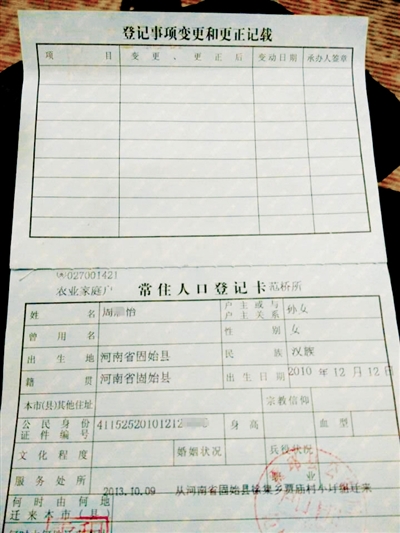 登记事项变更和更正记载
项 目 变 更 、 更 正 后 变动日期 承办人签章
027001421
农业家庭户 常 住 人 口 登 记 卡 范桥所
姓 名 周 怡 户 主 或 与 户 主 关 系 孙女
曾 用 名 性 别 女
出 生 地 河南省固始县 民 族 汉族
籍 贯 河南省固始县 出 生 日 期 2010 年 12 月 12 日
本市(县)其他住址 宗教信仰
公 民 身 份 证 件 编 号 41152520101212 身 高 血 型
文 化 程 度 婚姻状况 兵役状况
服 务 处 所 职 业
何 时 由 何 地 迁 来 本 市 (县) 2013.10.09 从河南省固始县徐集乡